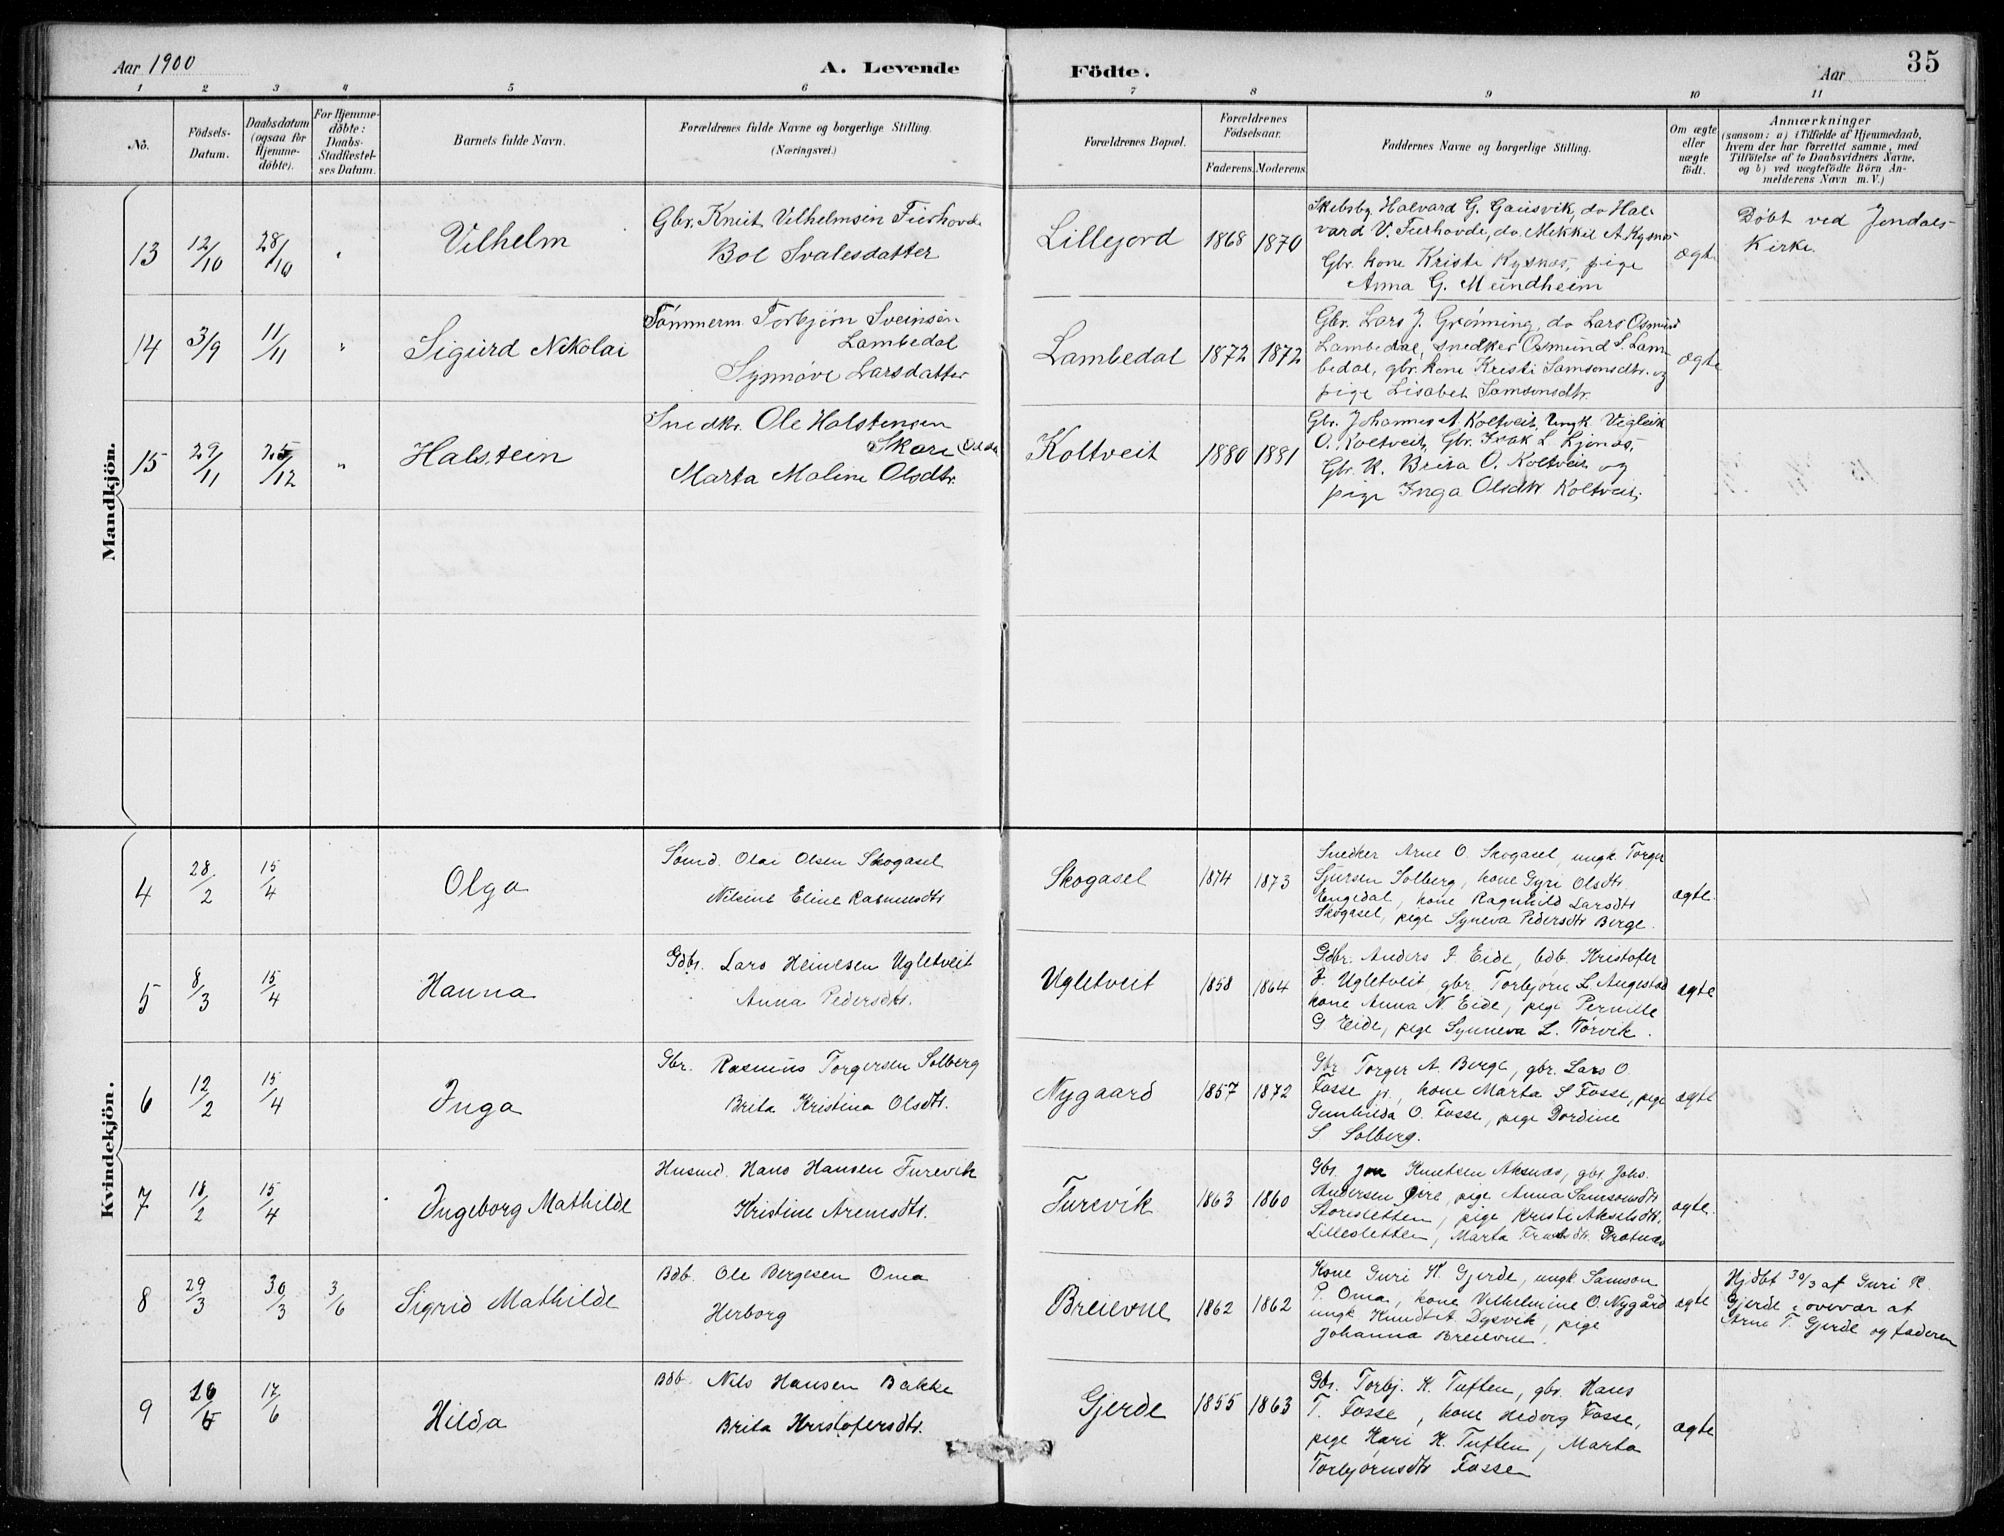 Aar 1900
A. Levende
Födte.
Aar
35
1 2 3 4 5 6 7 8 9 10 11
No.
Födsels-
Datum.
Daabsdatum
(ogsaa for
Hjemme-
döbte).
For Hjemme-
döbte:
Daabs-
Stadfæstel-
ses Datum.
Barnets fulde Navn.
Forældrenes fulde Navne og borgerlige Stilling.
(Næringsvei.)
Forældrenes Bopæl.
Forældrenes
Födselsaar.
Faderens. Moderens.
Faddernes Navne og borgerlige Stilling.
Om ægte
eller
uægte
födt.
Anmærkninger
(saasom: a) i Tilfælde af Hjemmedaab,
hvem der har forrettet samme, med
Tilföielse af to Daabsvidners Navne,
og b) ved uægtefödte Börn An-
melderens Navn m. V.)
Mandkjön.
13
12/10
28/10
"
Vilhelm
Gbr. Knut Vilhelmsen Tierhovde
Bol Svalesdatter
Lillejord
1868
1870
Skebsby Halvard G. Gausvik, do Hal-
vard V. Tierhovde, do Mekkil A. Kysnæs
Gbr. kone Kristi Kysnæs, pige
Anna G. Mundheim
ægte
Döbt ved Jondals
Kirke.
14
3/9
11/11
"
Sigurd Nikolai
Tömmerm. Torbjørn Sveinsen
Lambedal
Synnøve Larsdatter
Lambedal
1872
1872
Gbr. Lars J. Grønning, do Lars Osmund
Lambedal, snedker Osmund S. Lam-
bedal, gbr. kone Kristi Samsonsdtr. og
pige Lisabet Samsonsdtr.
ægte
15
29/11
25/12
"
Halstein
Snedkr. Ole Halstensen
Skare
Marta Maline Olsdtr.
Koltveit
1880
1881
Gbr. Johannes A. Koltveit, Ungk. Vigleik
O. Koltveit, Gbr. Isak L. Ljonæs,
Gbr. K. Brita O. Koltveit og
pige Inga Olsdtr Koltveit,
Kvindekjön.
4
28/2
15/4
Olga
Olai Olsen Skogasel
Nilsine Eline Rasmusdtr
Skogasel
1874
1873
Snedker Arne O. Skogasel, ungk. Torger
Sjursen Solberg, kone Gyri Olsdtr.
Engedal, kone Ragnhild Larsdtr
Skogasel, pige Syneva Pedersdtr Berge.
ægte.
5
8/3
15/4
Hanna
Gdbr. Lars Heinesen Ugletveit
Anna Pedersdtr.
Ugletveit
1858
1864
Gdbr. Anders J. Eide, bdb. Kristofer
J. Ugletveit, gbr. Torbjorn L. Augestad
kone Anna N. Eide, pige Pernille
G Eide, pige Synneva L. Torvik.
ægte
6
12/2
15/4
Inga
Gbr. Rasmus Torgersen Solberg
Brita Kristina Olsdtr.
Nygaard
1857
1872
Gbr Torger A. Berge, gbr. Lars O.
Fosse jr, kone Marta S Fosse, pige
Gunhilda O. Fosse, pige Dordine
S Solberg.
ægte
7
18/2
15/4
Ingeborg Mathilde
Husmd. Hans Hansen Furevik
Kristine Arnesdtr.
Furevik
1863
1860
Gbr. Jon Knutsen Aksnæs, gbr. Johs.
Andersen Øvre, pige Anna Samsonsdtr
Storesletten, pige Kristi Akselsdtr.
Lillesletten, Marta Grotnæs
ægte.
8
29/3
30/3
3/6
Sigrid Mathilde
Bdb. Ole Bergesen Oma
Herborg
Breievne
1862
1862
Kone Guri K. Gjerde, ungk. Samson
P. Oma, kone Vilhelmine O. Nygård
ungk Knudt A. Dysvik, pige
Johanna Breievne.
ægte
Hjdbt 30/3 af Guri K.
Gjerde i overvær af
Arne T. Gjerde og faderen
9
16/5
17/6
Hilda
Bdb. Nils Hansen Bakke
Brita Kristofersdtr.
Gjerde
1855
1863
Gbr. Torbj. K. Tuften, gbr. Hans
T. Fosse, kone Hedvig Fosse,
pige Kari K. Tuften, Marta
Torbjørnsdtr Fosse
ægte